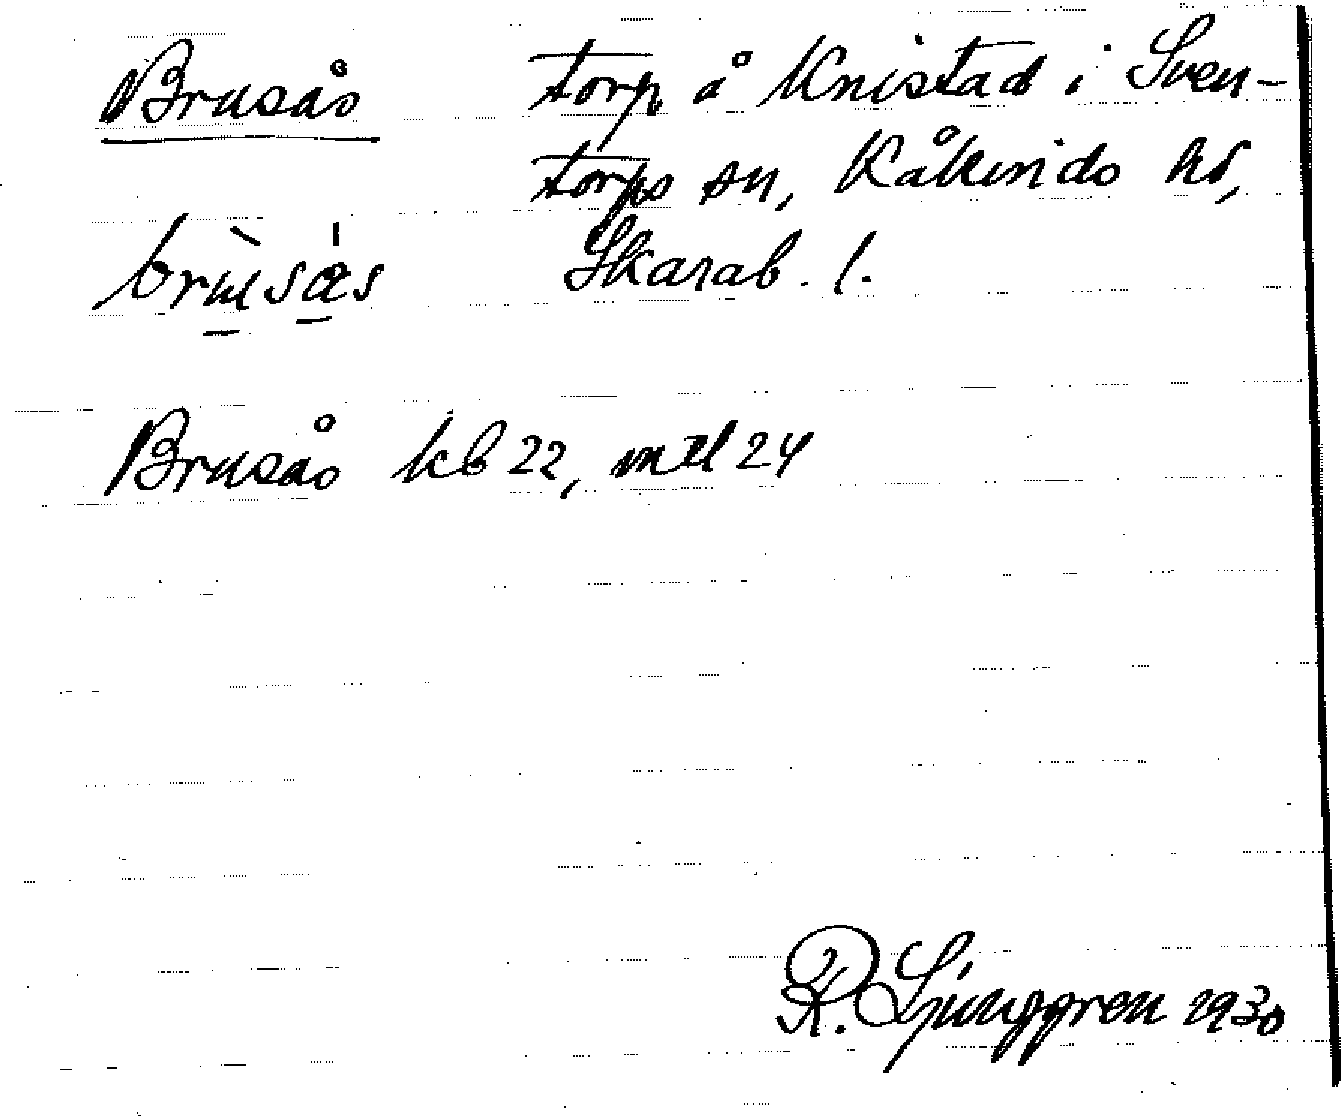 Brusås torp å Knistad i Sven-
torps sn, Kåkinds hd,
brùsás Skarab. l.
Brusås kb 22, mtl 24
R. Ljunggren 1930